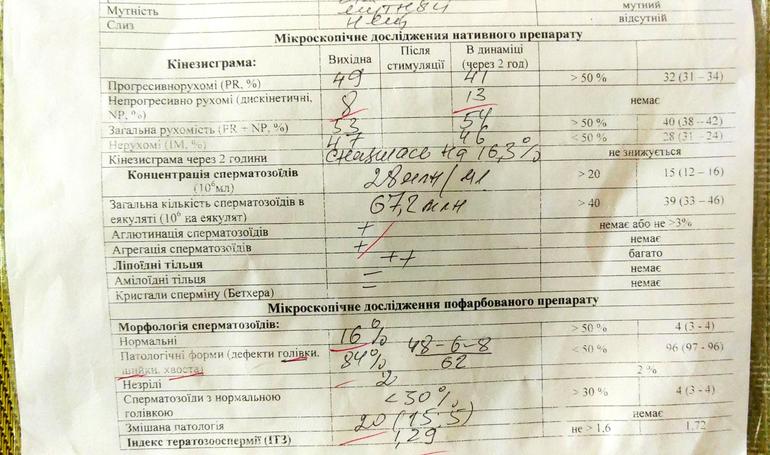 Мутність мутний
Слиз нещ відсутній
Мікроскопічне дослідження нативного препарату
Кінезисграма: Вихідна Після стимуляції В динаміці (через 2 год)
Прогресивнорухомі (PR, %) 49 41 > 50 % 32 (31 – 34)
Непрогресивно рухомі (дискінетичні, NP, %) 8 13 немає
Загальна рухомість (PR + NP, %) 53 54 > 50 % 40 (38 – 42)
Нерухомі (IM, %) 47 46 < 50 % 28 (31 – 24)
Кінезисграма через 2 години снизилась на 16,3% не знижується
Концентрація сперматозоїдів (10⁶мл) 28 млн/мл > 20 15 (12 – 16)
Загальна кількість сперматозоїдів в еякуляті (10⁶ на еякулят) 67,2 млн > 40 39 (33 – 46)
Аглютинація сперматозоїдів + немає або не >3%
Агрегація сперматозоїдів + немає
Ліпоїдні тільця ++ багато
Амілоїдні тільця – немає
Кристали сперміну (Бетхера) – немає
Мікроскопічне дослідження пофарбованого препарату
Морфологія сперматозоїдів:
Нормальні 16% > 50 % 4 (3 - 4)
Патологічні форми (дефекти голівки, шийки, хвоста) 84% 48-6-8 62 < 50 % 96 (97 - 96)
Незрілі 2 2 %
Сперматозоїди з нормальною голівкою < 30% > 30 % 4 (3 - 4)
Змішана патологія 20 (15;5) немає
Індекс тератозооспермії (ІТЗ) 1,29 не > 1,6 1,72